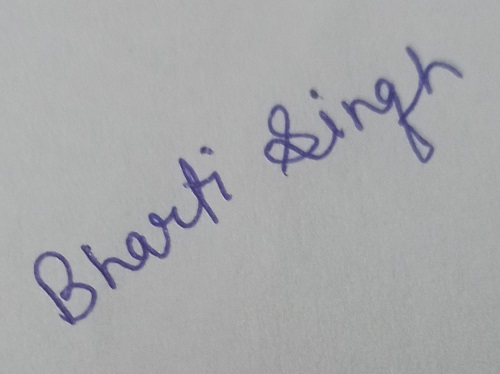 Bharti Singh